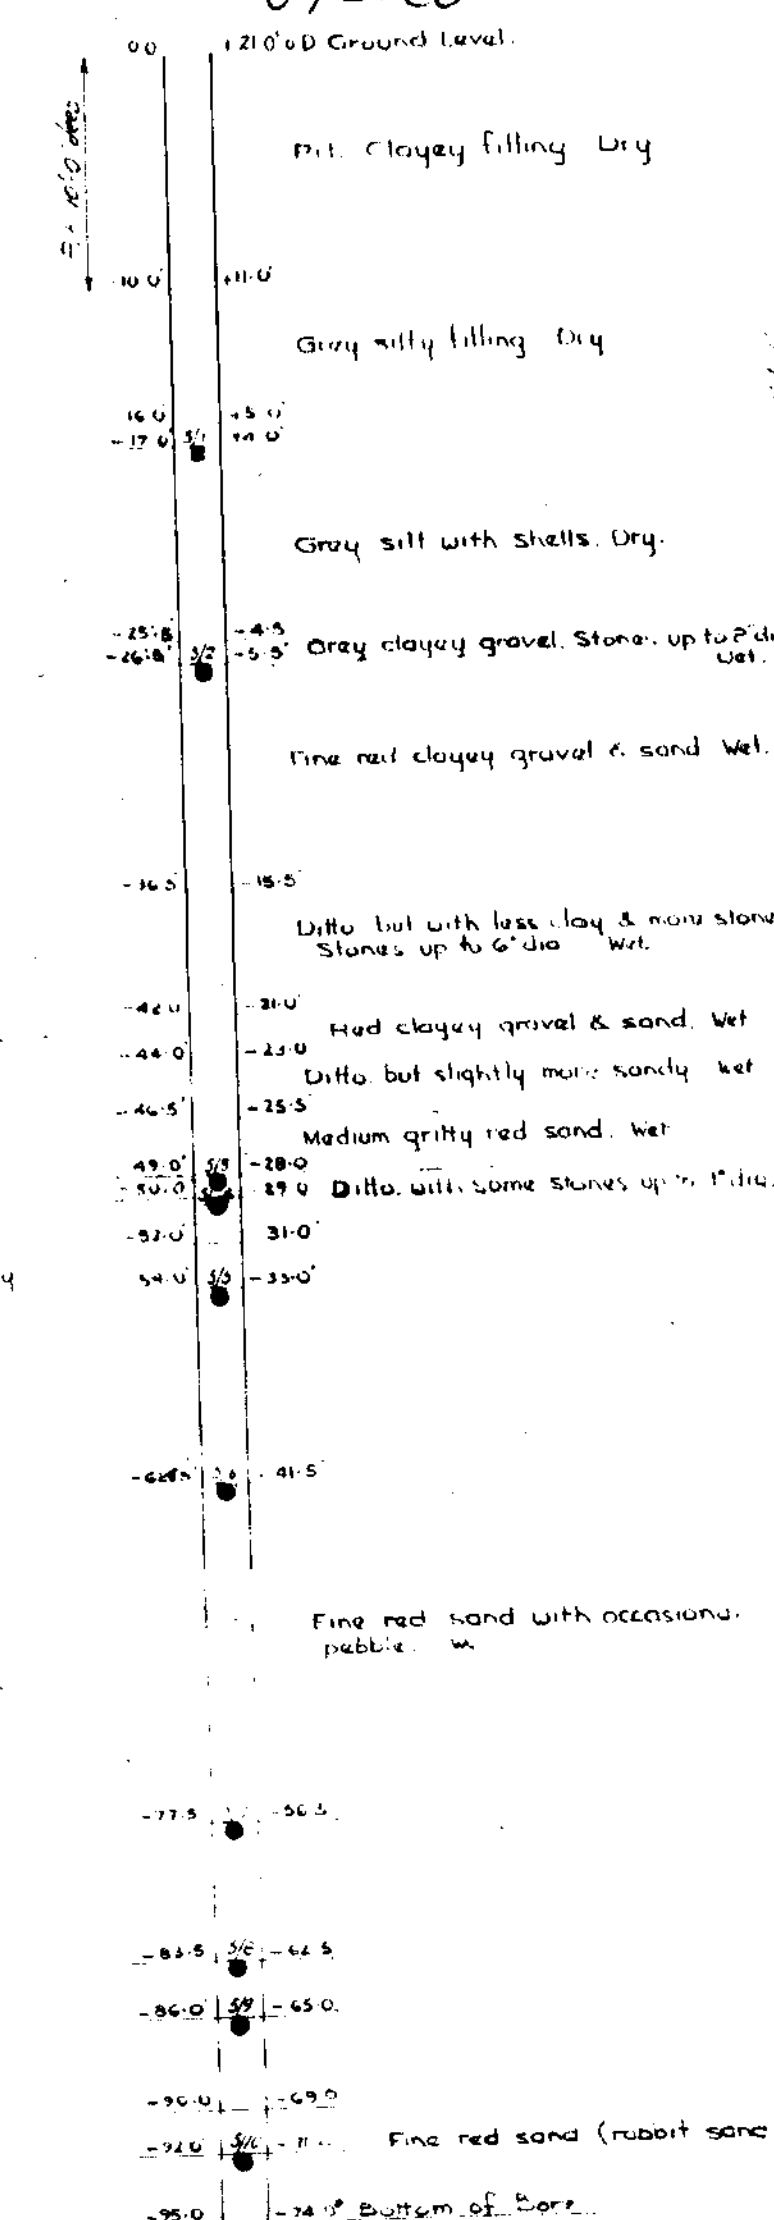 0.0 +21.0' O.D Ground Level.
10'.0 deep
Pit. Clayey filling Dry
10.0' +11.0'
Grey silty filling Dry
16.0' +5.0'
-17.0' S/1 +4.0'
Grey silt with shells. Dry.
-25.5' -4.5
-26.5' S/2 -5.5' Grey clayey gravel. Stones up to 2" di
Wet.
Fine red clayey gravel & sand Wet.
-36.5' -15.5'
Ditto but with less clay & more stone
Stones up to 6" dia Wet.
-42.0 -21.0'
Red clayey gravel & sand. Wet
-44.0' -23.0
Ditto. but slightly more sandy Wet
-46.5' -25.5'
Medium gritty red sand. Wet
49.0' S/3 -28.0
-50.0 29.0 Ditto. with some stones up to 1" dia.
-52.0' 31.0'
54.0' S/5 -33.0'
-62.5' 41.5'
Fine red sand with occasional
pebble.
-77.5 -56.5
-83.5 S/8 -62.5
-86.0' S/9 -65.0
-90.0 -69.0
-92.0 S/10 Fine red sand (rabbit sand
-95.0 -74.0" Bottom of Bore